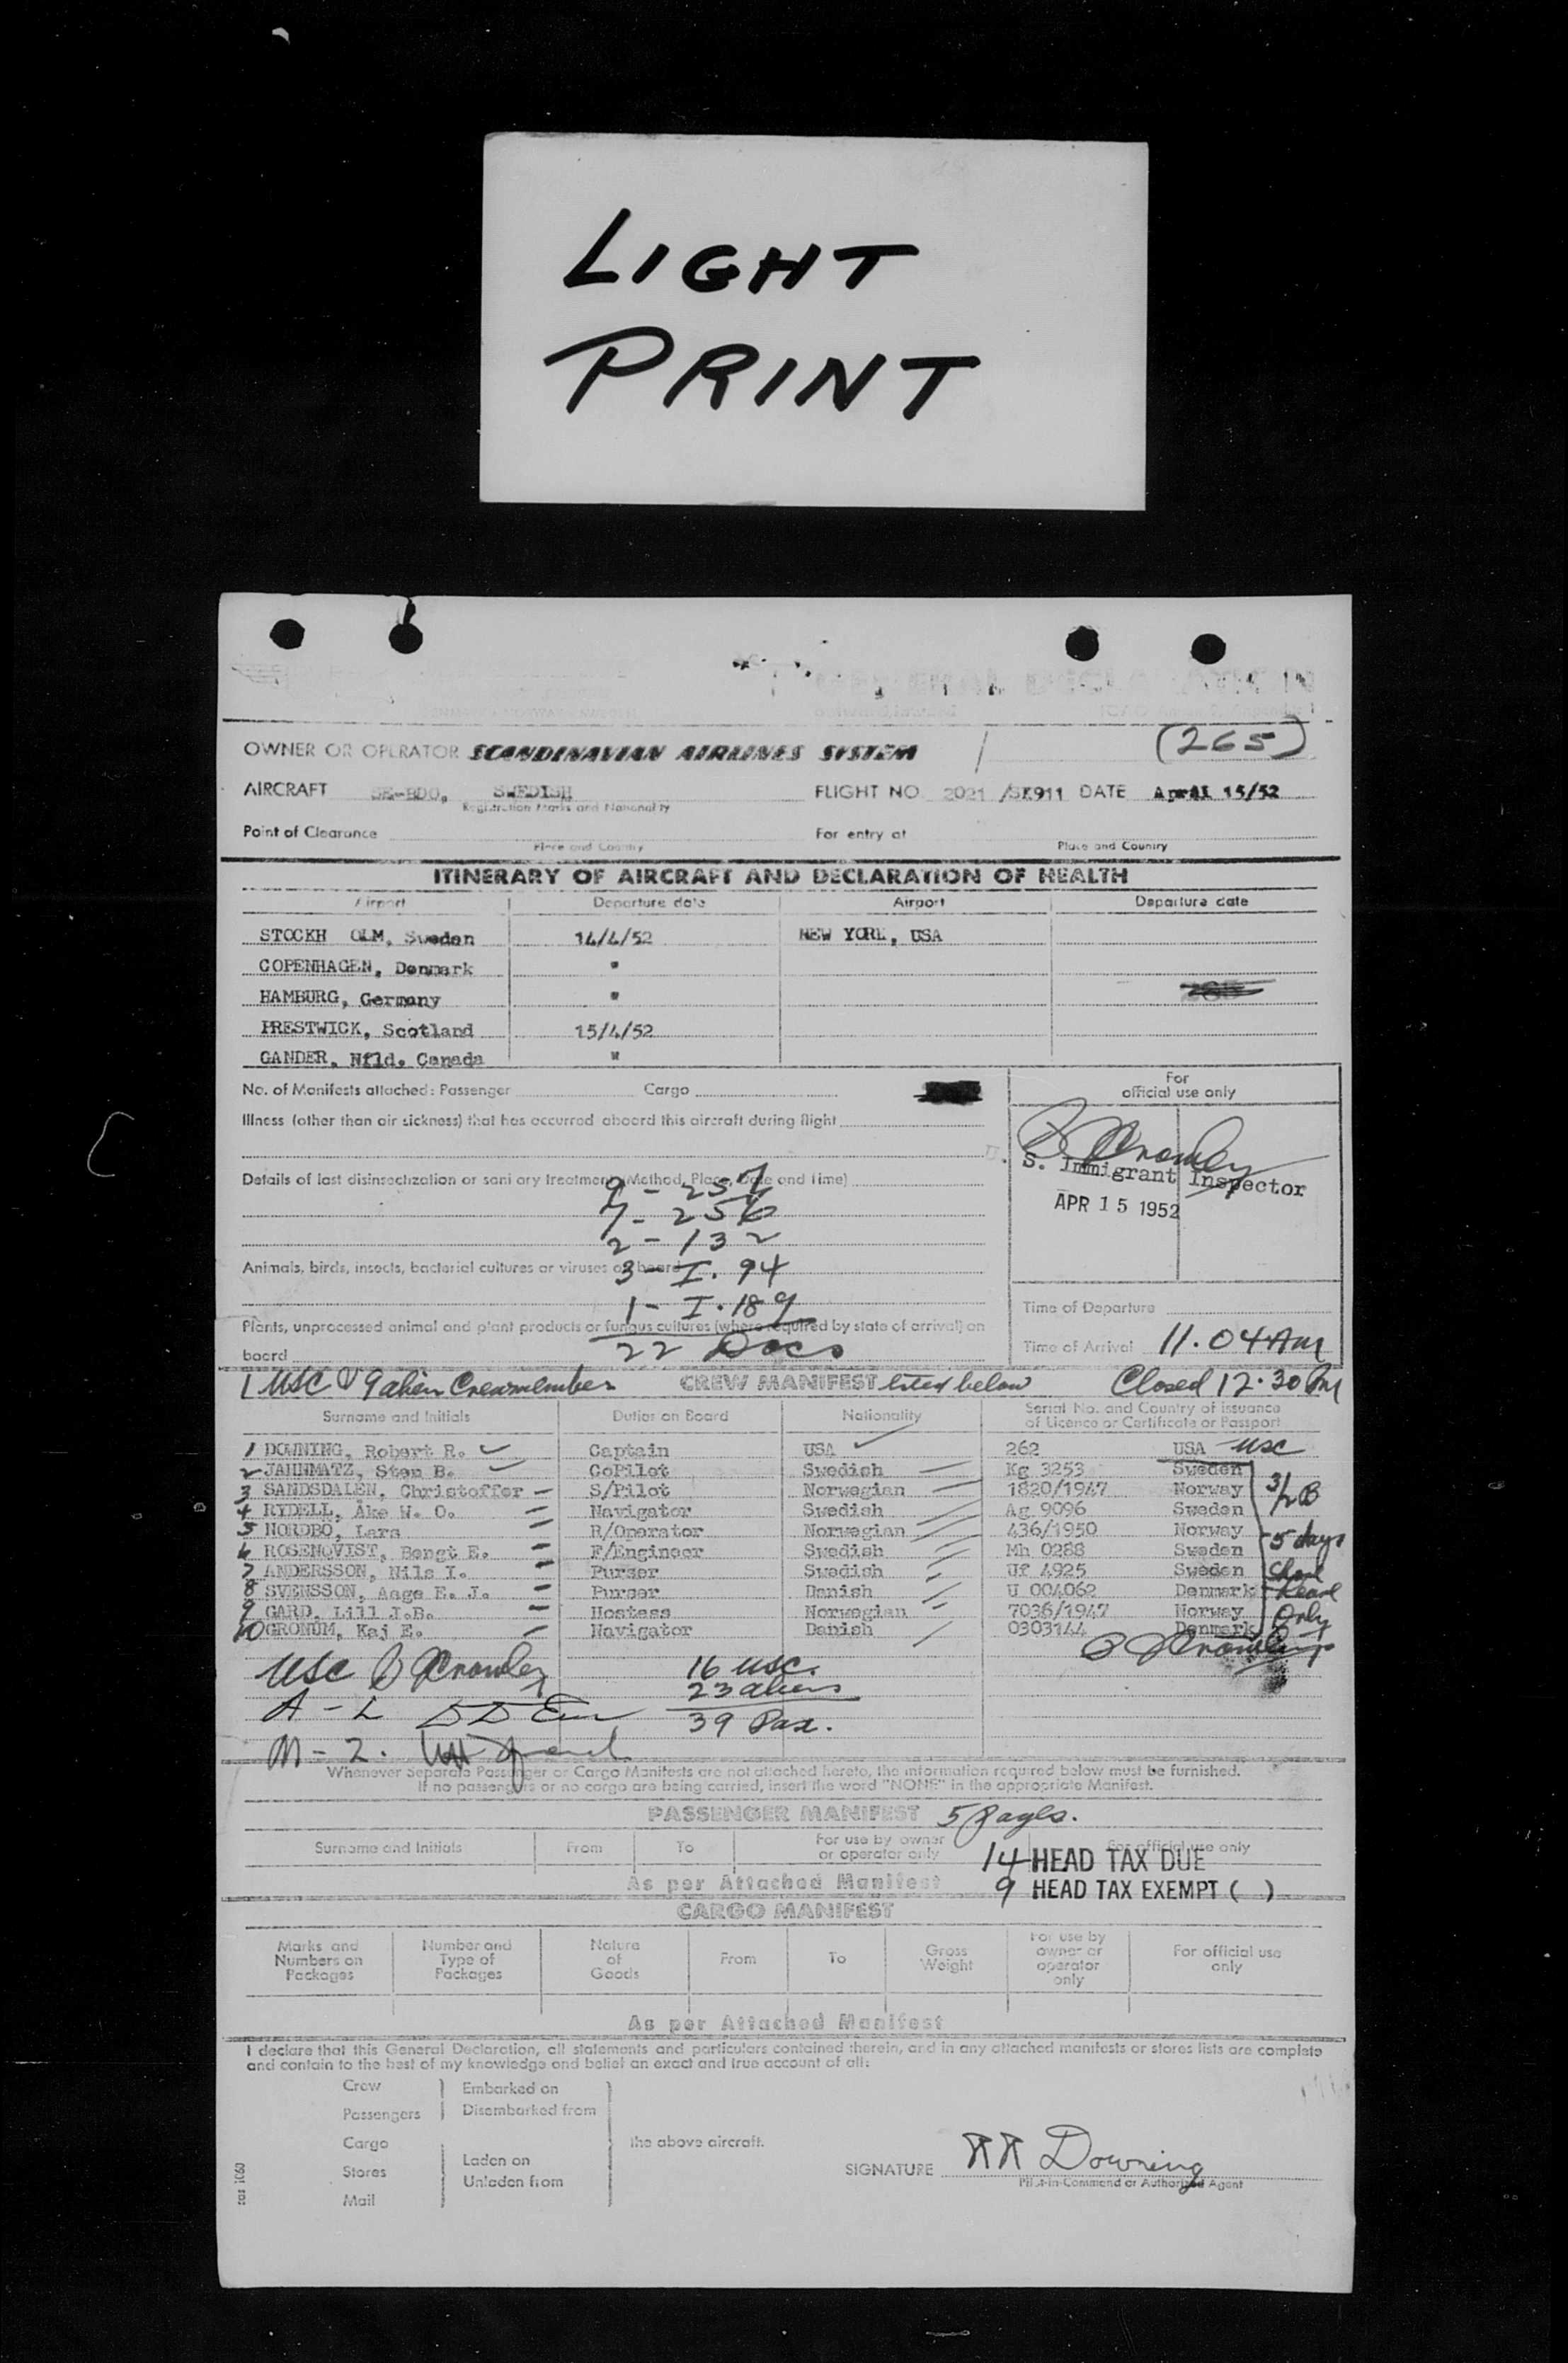 LIGHT
PRINT
(265)
OWNER OR OPERATOR SCANDINAVIAN AIRLINES SYSTEM
AIRCRAFT SE-BDO, SWEDISH FLIGHT NO 2021 /SK911 DATE April 15/52
Registration Marks and Nationality
Point of Clearance For entry at
Place and Country Place and Country
ITINERARY OF AIRCRAFT AND DECLARATION OF HEALTH
Airport Departure date Airport Departure date
STOCKH OLM, Sweden 14/4/52 NEW YORK, USA
COPENHAGEN, Denmark "
HAMBURG, Germany "
PRESTWICK, Scotland 15/4/52
GANDER, Nfld. Canada "
No. of Manifests attached: Passenger Cargo
For
official use only
Illness (other than air sickness) that has occurred aboard this aircraft during flight
U. S. Immigrant Inspector
APR 15 1952
Details of last disinsectization or sanitary treatment (Method, Place, Date and Time)
9 - 257
7 - 256
2 - 132
Animals, birds, insects, bacterial cultures or viruses on board
3 - I. 94
1 - I. 189
Plants, unprocessed animal and plant products or fungus cultures (where required by state of arrival) on
board
22 Docs
Time of Departure
Time of Arrival 11.04 AM
1 USC & 9 alien Crewmember CREW MANIFEST listed below Closed 12.30 PM
Surname and Initials Duties on Board Nationality Serial No. and Country of issuance
of Licence or Certificate or Passport
1 DOWNING, Robert R. Captain USA 262 USA USC
2 JAHNMATZ, Sten B. CoPilot Swedish Kg 3253 Sweden
3 SANDSDALEN, Christoffer S/Pilot Norwegian 1820/1947 Norway
4 RYDELL, Åke W. O. Navigator Swedish Ag 9096 Sweden
5 NORDBO, Lars R/Operator Norwegian 436/1950 Norway
6 ROSENQVIST, Bengt E. F/Engineer Swedish Mh 0288 Sweden
7 ANDERSSON, Nils I. Purser Swedish Uf 4925 Sweden
8 SVENSSON, Aage E. J. Purser Danish U 004062 Denmark
9 GARD, Lill J.B. Hostess Norwegian 7036/1947 Norway
10 GRONUM, Kaj E. Navigator Danish 0303144 Denmark
3/2 B
5 days
Shore
Leave
Only
USC
16 USC.
23 aliens
39 Pax.
A - L
M - Z.
Whenever Separate Passenger or Cargo Manifests are not attached hereto, the information required below must be furnished.
If no passengers or no cargo are being carried, insert the word "NONE" in the appropriate Manifest.
PASSENGER MANIFEST 5 Pages.
Surname and Initials From To For use by owner
or operator only For official use only
14 HEAD TAX DUE
As per Attached Manifest
9 HEAD TAX EXEMPT ( )
CARGO MANIFEST
Marks and
Numbers on
Packages
Number and
Type of
Packages
Nature
of
Goods
From
To
Gross
Weight
For use by
owner or
operator
only
For official use
only
As per Attached Manifest
I declare that this General Declaration, all statements and particulars contained therein, and in any attached manifests or stores lists are complete
and contain to the best of my knowledge and belief an exact and true account of all:
Crew Embarked on
Passengers Disembarked from
Cargo the above aircraft.
Stores Laden on
Unladen from
Mail
SIGNATURE RR Downing
Pilot-in-Command or Authorized Agent